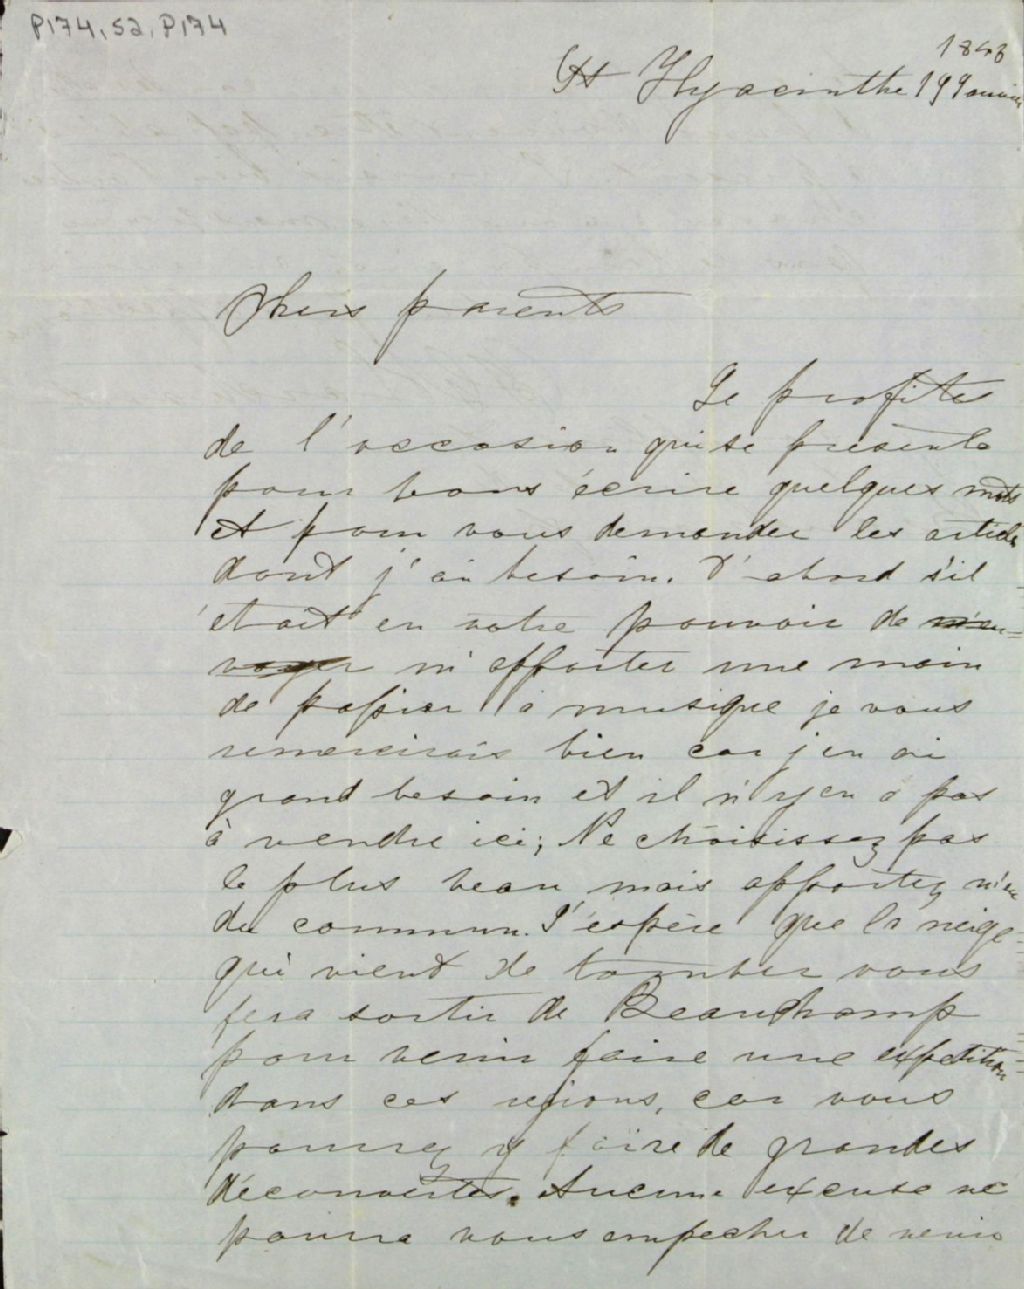 P174, S2, P174
1843
St Hyacinthe 19 Janvier
Chers parents
Je profites
de l'occasion qui se presente
pour vous écrire quelques mots
et pour vous demander les articles
dont j'ai besoin. D'abord s'il
était en votre pouvoir de m'en-
voyer m'apporter une main
de papier à musique je vous
remercirais bien car j'en ai
grand besoin et il n'y en a pas
à vendre ici; Ne choisissez pas
le plus beau mais apportez m'en
du commun. J'éspère que la neige
qui vient de tomber vous
fera sortir de Beauchamp
pour venir faire une expetition
dans ces regions, car vous
pourrez y faire de grandes
découvertes. Aucune excuse ne
pourra vous empecher de venir